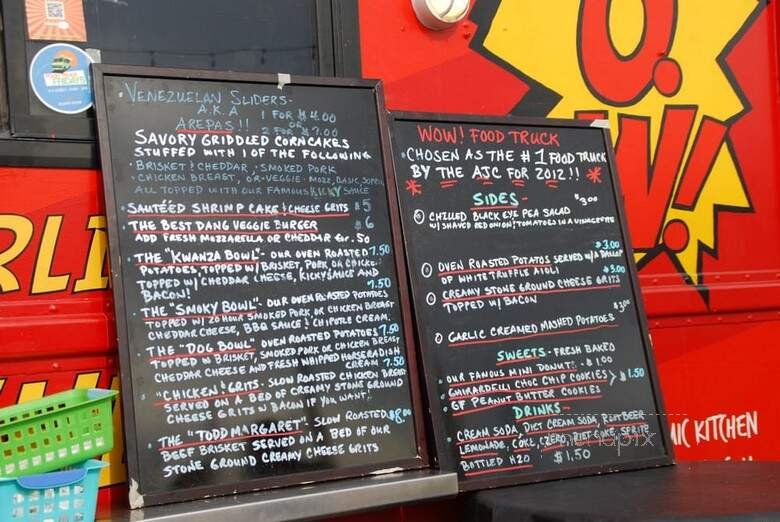 VENEZUELAN SLIDERS-
A.K.A 1 FOR $4.00
OR
AREPAS!! 2 FOR $7.00
SAVORY GRIDDLED CORNCAKES
STUFFED WITH 1 OF THE FOLLOWING
BRISKET & CHEDDAR, SMOKED PORK,
CHICKEN BREAST, OR-VEGGIE-MOZZ, BASIL,
ALL TOPPED WITH OUR FAMOUS KICKY SAUCE
• SAUTÉED SHRIMP CAKE & CHEESE GRITS $5
• THE BEST DANG VEGGIE BURGER $6
ADD FRESH MOZZARELLA OR CHEDDAR .50
• THE "KWANZA BOWL"- OUR OVEN ROASTED 7.50
POTATOES, TOPPED W/ BRISKET, PORK OR CHICKEN
TOPPED W/ CHEDDAR CHEESE, KICKY SAUCE AND
BACON! 7.50
• THE "SMOKY BOWL"- OUR OVEN ROASTED POTATOES
TOPPED W/ 20 HOUR SMOKED PORK, OR CHICKEN BREAST
CHEDDAR CHEESE, BBQ SAUCE & CHIPOTLE CREAM.
• THE "DOG BOWL" OVEN ROASTED POTATOES 7.50
TOPPED W/ BRISKET, SMOKED PORK OR CHICKEN BREAST
CHEDDAR CHEESE AND FRESH WHIPPED HORSERADISH
CREAM 7.50
• "CHICKEN & GRITS- SLOW ROASTED CHICKEN BREAST
SERVED ON A BED OF CREAMY STONE GROUND
CHEESE GRITS W/ BACON IF YOU WANT!
• THE "TODD MARGARET". SLOW ROASTED $8.00
BEEF BRISKET SERVED ON A BED OF OUR
STONE GROUND CREAMY CHEESE GRITS
WOW! FOOD TRUCK
• CHOSEN AS THE #1 FOOD TRUCK
BY THE AJC FOR 2012!!
SIDES-
CHILLED BLACK EYE PEA SALAD $3.00
W/ SHAVED RED ONION & TOMATOES IN A VINAGRETTE
$3.00
OVEN ROASTED POTATOS SERVED W/ A DALLOP
OF WHITE TRUFFLE AIOLI $3.00
CREAMY STONE GROUND CHEESE GRITS
TOPPED W/ BACON
$3.00
GARLIC CREAMED MASHED POTATOES
SWEETS- FRESH BAKED
• OUR FAMOUS MINI DONUTS - $1.00
GHIRARDELLI CHOC CHIP COOKIES > $1.50
• GF PEANUT BUTTER COOKIES
DRINKS-
• CREAM SODA, DIET CREAM SODA, ROOT BEER
LEMONADE, COKE, CZERO, DIET COKE, SPRITE
BOTTLED H20 $1.50
O.
W!
KITCHEN
menupix